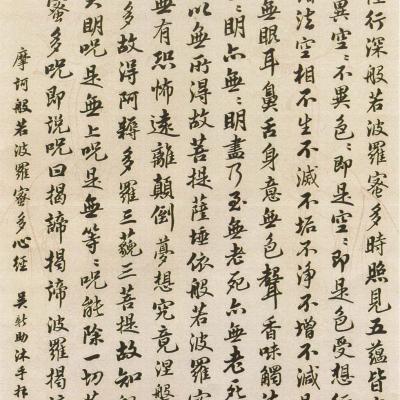 行深般若波羅蜜多時照見五蘊皆
異空〻不異色〻即是空〻即是色受想行
法空相不生不滅不垢不淨不增不減是
無眼耳鼻舌身意無色聲香味觸法
無〻明亦無〻明盡乃至無老死亦無老死
以無所得故菩提薩埵依般若波羅蜜
無有恐怖遠離顛倒夢想究竟涅槃
多故得阿耨多羅三藐三菩提故知般
大明呪是無上呪是無等〻呪能除一切苦
蜜多呪即說呪曰揭諦揭諦波羅揭諦
摩訶般若波羅蜜多心經 吳新助沐手拜